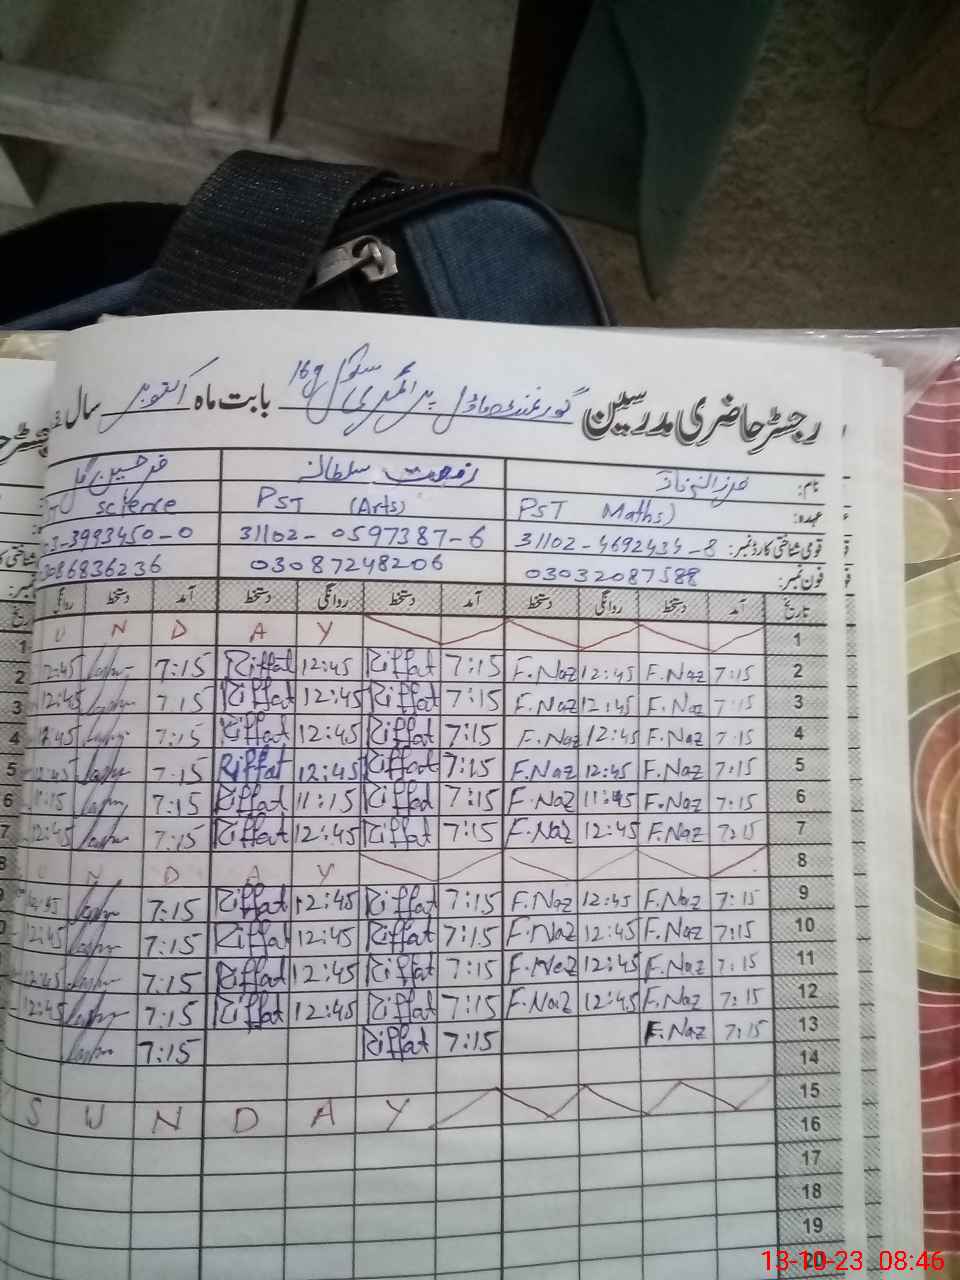 رجسٹر حاضری مدرسین گورنمنٹ ماڈل پرائمری سکول بابت ماہ اکتوبر سال
نام: رفعت سلطانہ
عہدہ: PST Maths) PST (Arts) science
قومی شناختی کارڈ نمبر: 31102-4692434-8 31102-0597387-6 03-3993450-0
فون نمبر: 03032087588 03087248206 3086836236
تاریخ آمد دستخط روانگی دستخط آمد دستخط روانگی دستخط آمد دستخط روانگی
1 U N D A Y
2 7:15 F.Naz 12:45 F.Naz 7:15 Riffat 12:45 Riffat 7:15 12:45
3 7:15 F.Naz 12:45 F.Naz 7:15 Riffat 12:45 Riffat 7:15 12:45
4 7:15 F.Naz 12:45 F.Naz 7:15 Riffat 12:45 Riffat 7:15 12:45
5 7:15 F.Naz 12:45 F.Naz 7:15 Riffat 12:45 Riffat 7:15 12:45
6 7:15 F.Naz 11:45 F.Naz 7:15 Riffat 11:15 Riffat 7:15 11:15
7 7:15 F.Naz 12:45 F.Naz 7:15 Riffat 12:45 Riffat 7:15 12:45
8 U N D A Y
9 7:15 F.Naz 12:45 F.Naz 7:15 Riffat 12:45 Riffat 7:15 12:45
10 7:15 F.Naz 12:45 F.Naz 7:15 Riffat 12:45 Riffat 7:15 12:45
11 7:15 F.Naz 12:45 F.Naz 7:15 Riffat 12:45 Riffat 7:15 12:45
12 7:15 F.Naz 12:45 F.Naz 7:15 Riffat 12:45 Riffat 7:15 12:45
13 7:15 F.Naz 7:15 Riffat 7:15
14
15 S U N D A Y
16
17
18
19
20
13-10-23 08:46